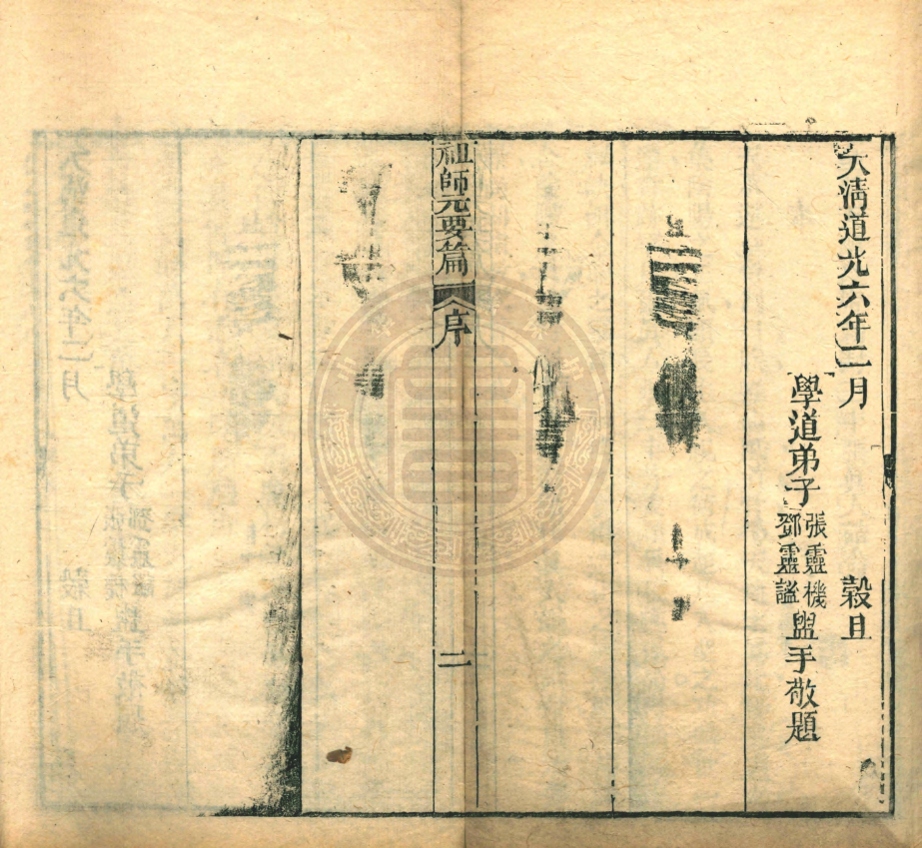 大淸道光六年二月 穀旦
學道弟子 張靈機 鄧靈謐 盥手敬題
祖師元要篇 序 二